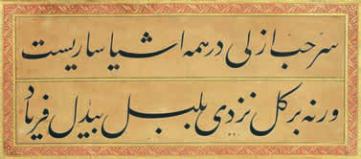 سر حب ازلی در همه اشیا ساریست
ورنه بر گل نزدی بلبل بیدل فریاد